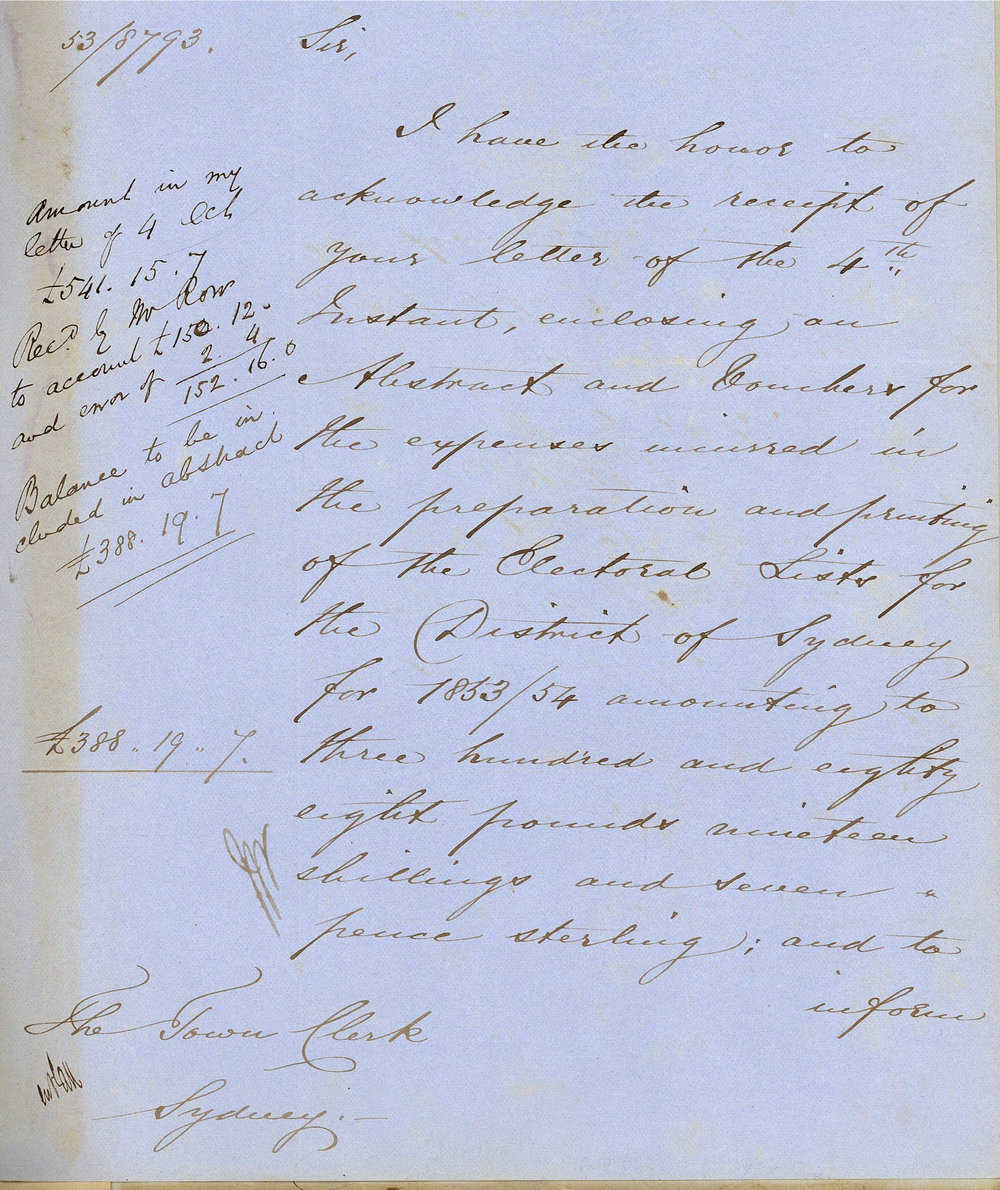 53/8793.
Sir,
I have the honor to
acknowledge the receipt of
your letter of the 4th
Instant, enclosing an
Abstract and Vouchers for
the expenses incurred in
the preparation and printing
of the Electoral Lists for
the District of Sydney
for 1853/54 amounting to
three hundred and eighty
eight pounds nineteen
shillings and seven "
pence sterling; and to
inform
Amount in my
letter of 4 Oct
£541. 15. 7
Recd. by Mr Row
to account £150. 12.
and error of 2. 4
152. 16. 0
Balance to be in
cluded in abstract
£388. 19. 7
£388 .. 19 .. 7.
The Town Clerk
Sydney.